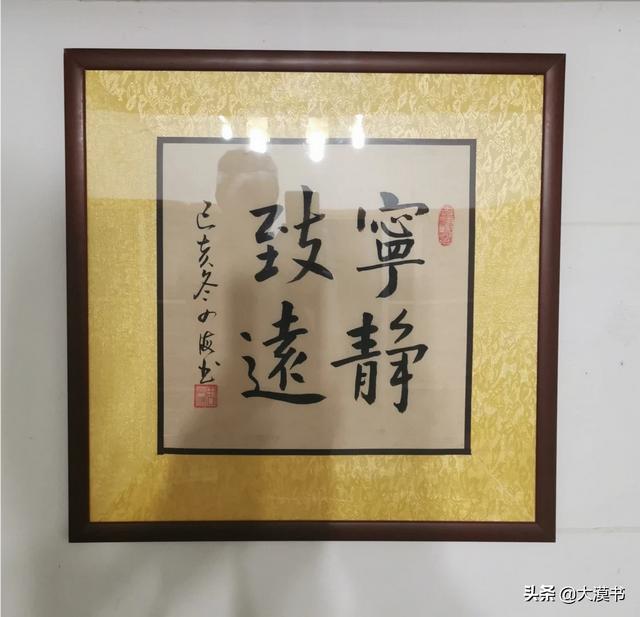 寧靜
致遠
己亥冬海书
头条 @大漠书